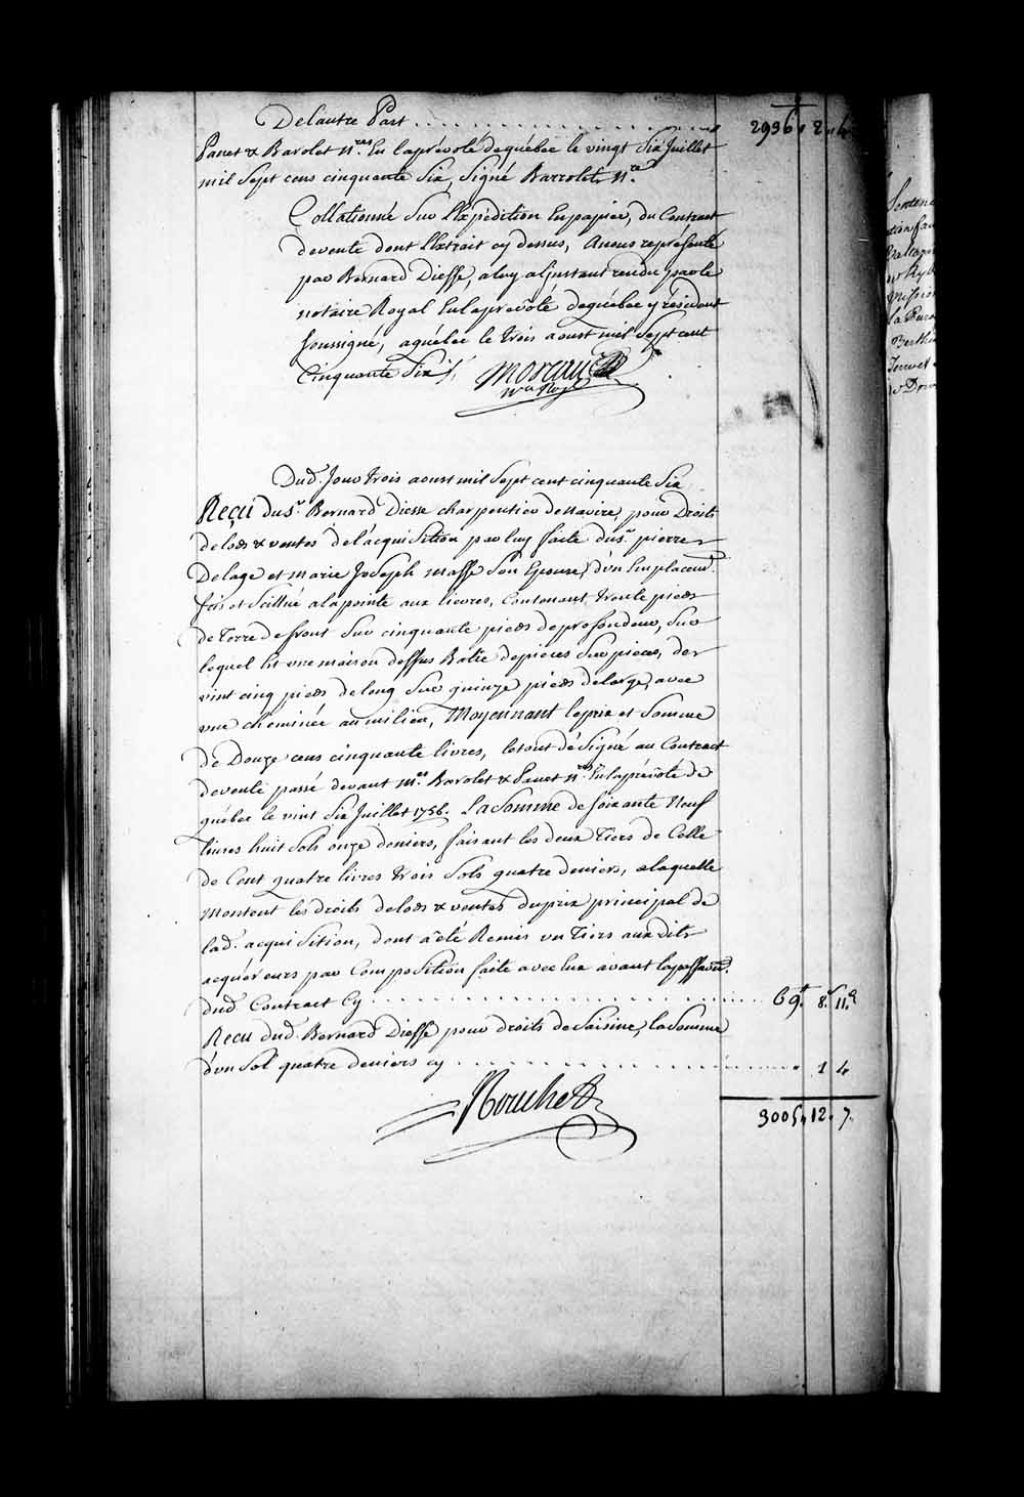 Delautre Part . . . . . . . . . . . . . . . . 2936 " 2 " 4
Panet & Barolet n.res En laprévoté dequébec le vingt Six Juillet
mil Sept cens cinquante Six, Signé Barrolet n.re
Collationné Sur L'Expedition Enpapier, du Contract
devente dont L'Extrait cy dessus, Anous représenté
par Bernard Diesse, aluy aljnstant rendu parle
notaire Royal Enlaprevôté dequébec y résident
soussigné, aquébec le Trois aoust mil Sept cent
Cinquante Six ./.
Moreau
n.re Roy.l
Dud. Jour Trois aoust mil Sept cent cinquante Six
Reçu du S.r Bernard Diesse charpentier denavire, pour Droits
delods & ventes delacquisition par luy faite du S.r pierre
Delage et marie Joseph masse Son Epouse, d'un Emplacem.t
sis et Scittué alapointe aux lievres, Contenant Trente pieds
de Terre defront Sur cinquante pieds deprofondeur, Sur
lequel Est une maison dessus Batie depieces Surpieces, de
vint cinq pieds delong Sur quinze pieds delarge, avec
une cheminée aumilieu, Moyennant leprix et Somme
de Douze cens cinquante livres, letout désigné au Contract
devente passé devant m.es Barolet & Panet n.res Enlaprévoté de
québec le vint Six Juillet 1756. La Somme de soixante Neuf
livres huit Sols onze deniers, faisant les deux Tiers de Celle
de Cent quatre livres Trois Sols quatre deniers, alaquelle
montent les droits delods & ventes duprix principal de
lad. acquisition, dont aété Remis un Tiers aux dits
acquéreurs par Composition faite avec Eux avant lapassation
dud. Contract Cy . . . . . . . . . . . . . . . . 69.# 8.s 11.d
Recu dud. Bernard Diesse pour droits de Saisine, la Somme
d'un Sol quatre deniers cy . . . . . . . . . . . . " 1 4
Nouchet
3005 " 12 " 7.